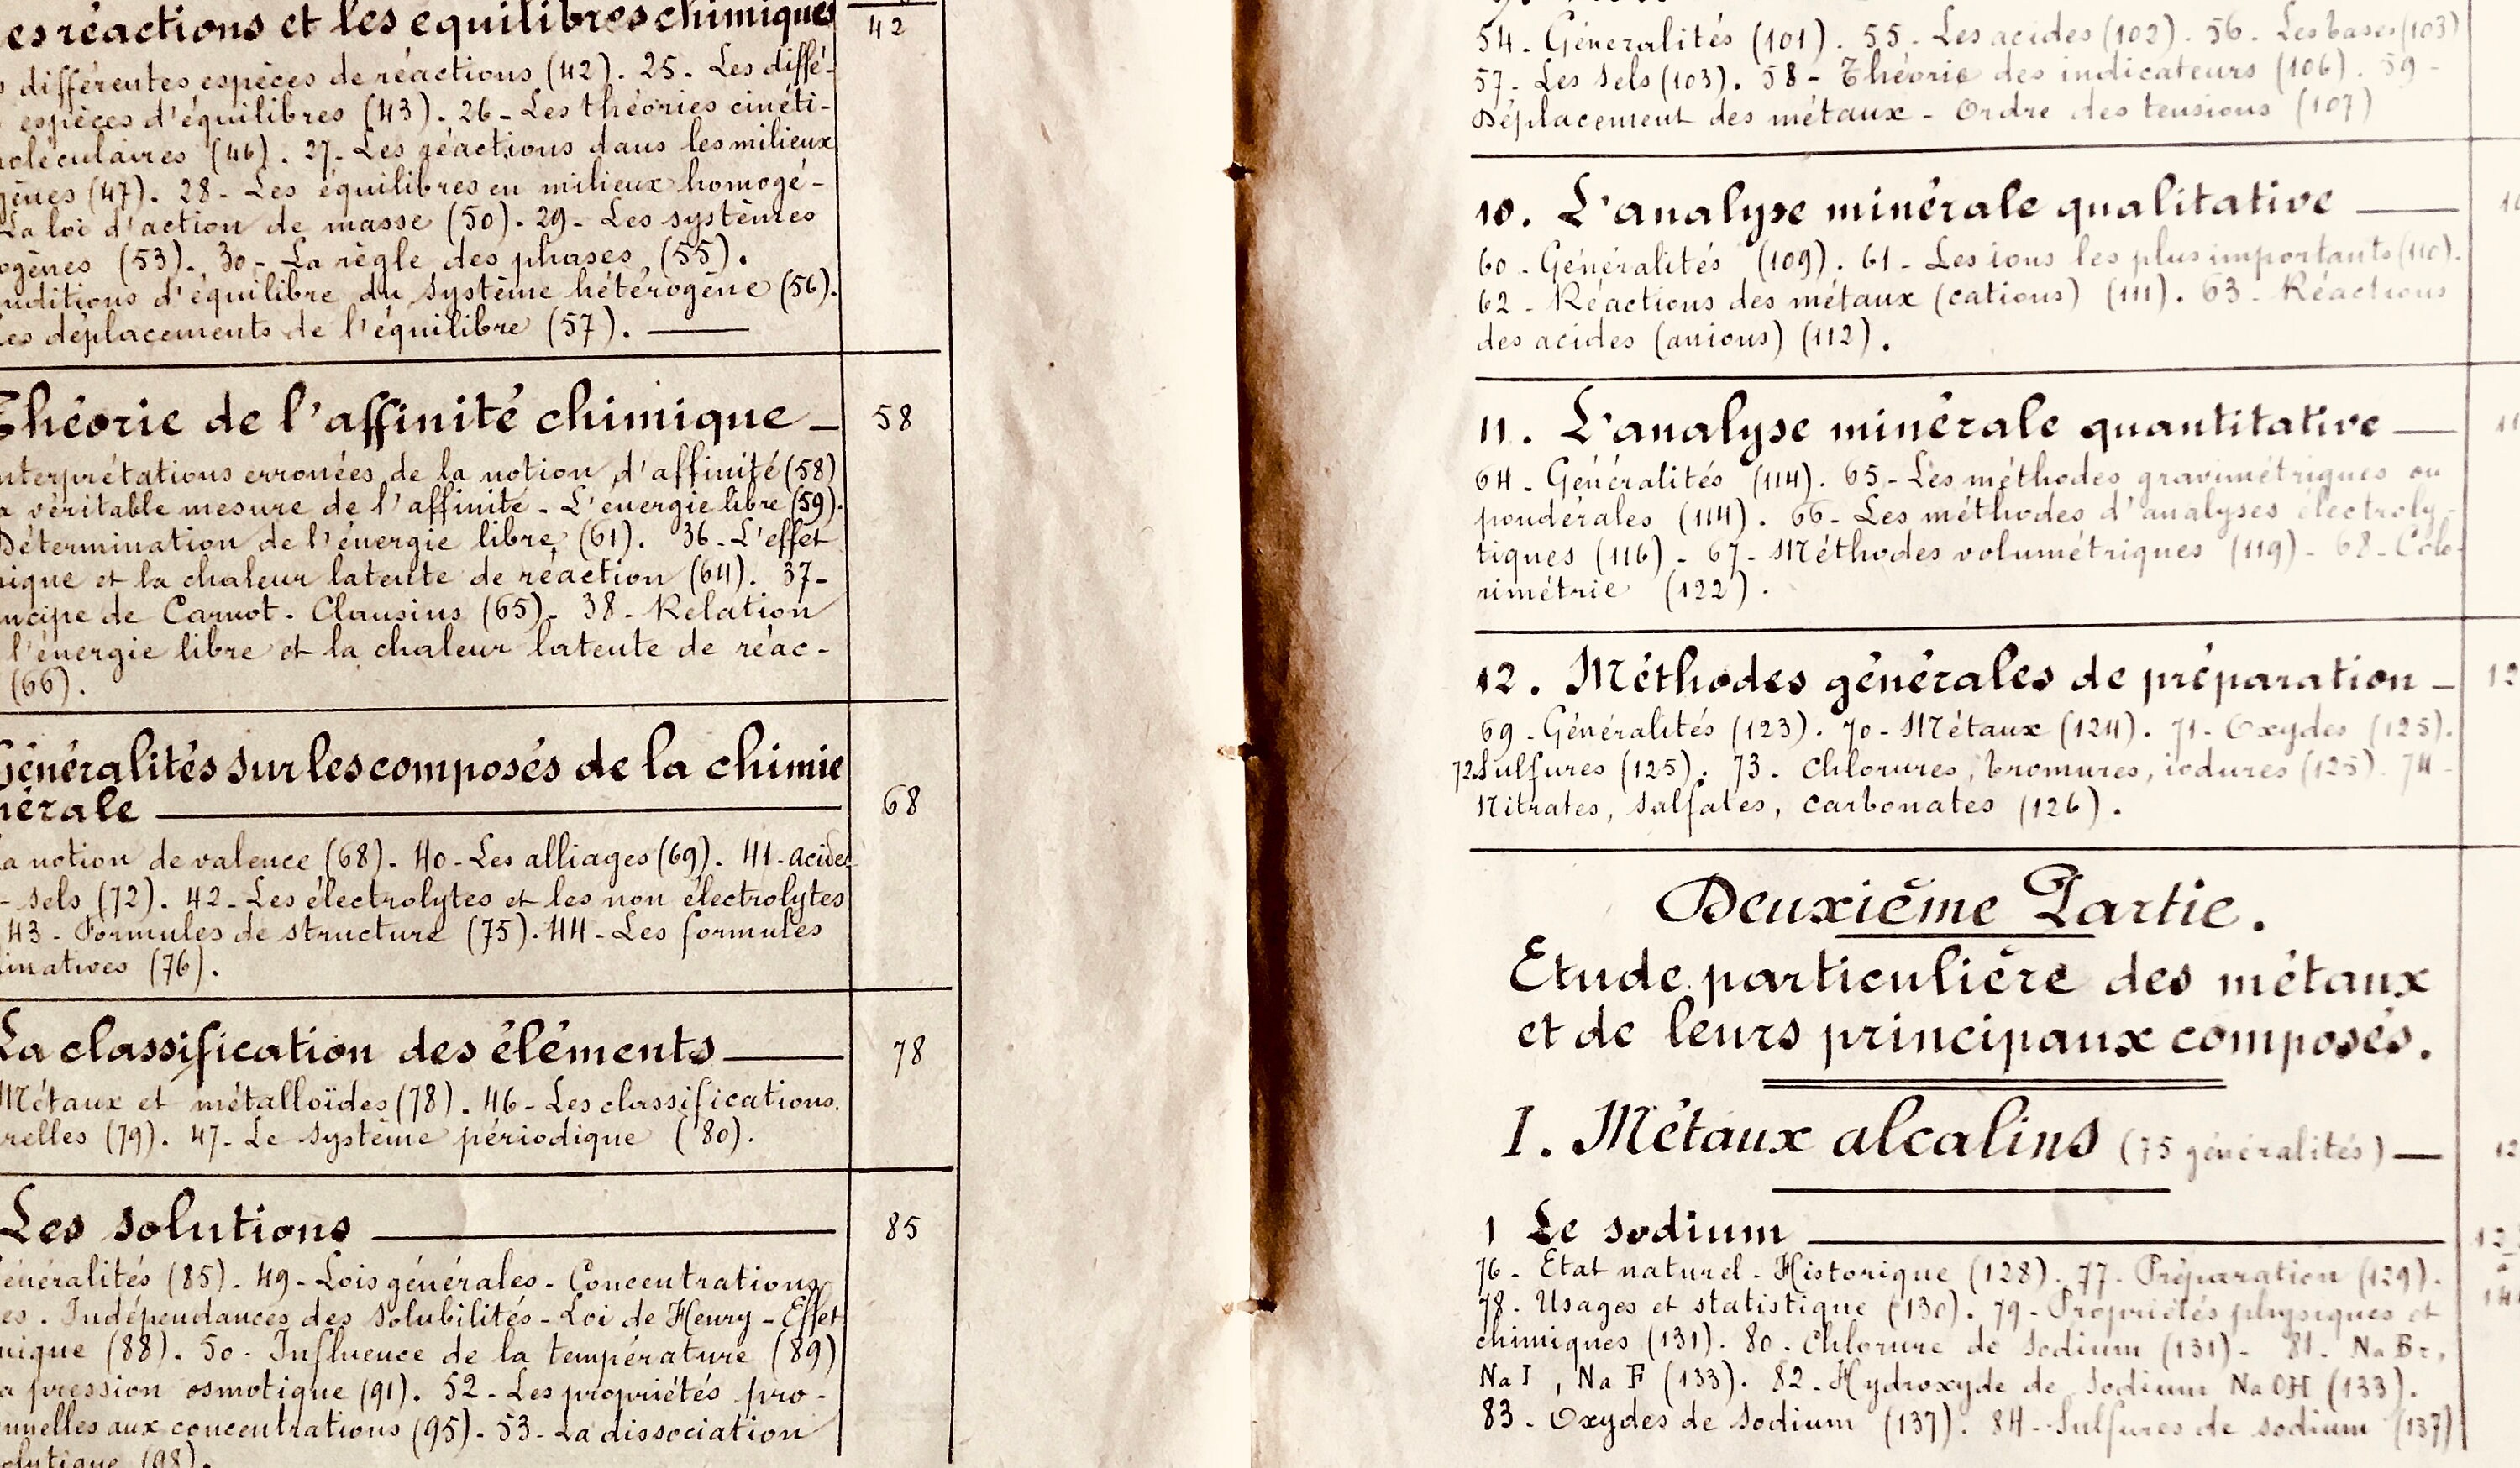 es réactions et les équilibres chimiques
42
différentes espèces de réactions (42). 25. Les diffé-
espèces d'équilibres (43). 26 - Les théories cinéti-
oléculaires (46). 27 - Les réactions dans les milieux
gènes (47). 28 - Les équilibres en milieux homogé-
La loi d'action de masse (50). 29 - Les systèmes
ogènes (53). 30 - La règle des phases (55).
nditions d'équilibre du système hétérogène (56).
es déplacements de l'équilibre (57).
Théorie de l'affinité chimique
58
nterprétations erronées de la notion d'affinité (58)
a véritable mesure de l'affinité - L'énergie libre (59).
Détermination de l'énergie libre (61). 36 - L'effet
ique et la chaleur latente de réaction (64). 37 -
ncipe de Carnot - Clausius (65) - 38 - Relation
l'énergie libre et la chaleur latente de réac-
(66).
Généralités sur les composés de la chimie
nérale
68
a notion de valence (68). 40 - Les alliages (69). 41 - acides
- sels (72). 42 - Les électrolytes et les non électrolytes
43 - Formules de structure (75). 44 - Les formules
inatives (76).
La classification des éléments
78
Métaux et métalloïdes (78). 46 - Les classifications
relles (79). 47 - Le système périodique (80).
Les solutions
85
énéralités (85) - 49 - Lois générales - Concentrations
es. Indépendances des solubilités - Loi de Henry - Effet
nique (88). 50 - Influence de la température (89)
a pression osmotique (91). 52 - Les propriétés pro-
nnelles aux concentrations (95). 53 - La dissociation
olytique (98).
54 - Généralités (101). 55 - Les acides (102). 56 - Les bases (103)
57 - Les sels (103). 58 - Théorie des indicateurs (106). 59 -
Déplacement des métaux - Ordre des tensions (107)
10. L'analyse minérale qualitative
60 - Généralités (109). 61 - Les ions les plus importants (110).
62 - Réactions des métaux (cations) (111). 63 - Réactions
des acides (anions) (112).
11. L'analyse minérale quantitative
64 - Généralités (114). 65 - Les méthodes gravimétriques ou
pondérales (114). 66 - Les méthodes d'analyses électroly-
tiques (116) - 67 - Méthodes volumétriques (119) - 68 - Colo-
rimétrie (122).
12. Méthodes générales de préparation
69 - Généralités (123). 70 - Métaux (124). 71 - Oxydes (125).
72 Sulfures (125). 73. Chlorures, bromures, iodures (125). 74 -
Nitrates, sulfates, carbonates (126).
Deuxième Partie.
Etude particulière des métaux
et de leurs principaux composés.
I. Métaux alcalins (75 généralités)
1 Le sodium
76 - Etat naturel - Historique (128). 77 - Préparation (129).
78 - Usages et statistique (130). 79 - Propriétés physiques et
chimiques (131). 80. Chlorure de sodium (131) - 81. Na Br,
Na I, Na F (133). 82 - Hydroxyde de sodium Na OH (133).
83 - Oxydes de sodium (137). 84 - Sulfures de sodium (137)